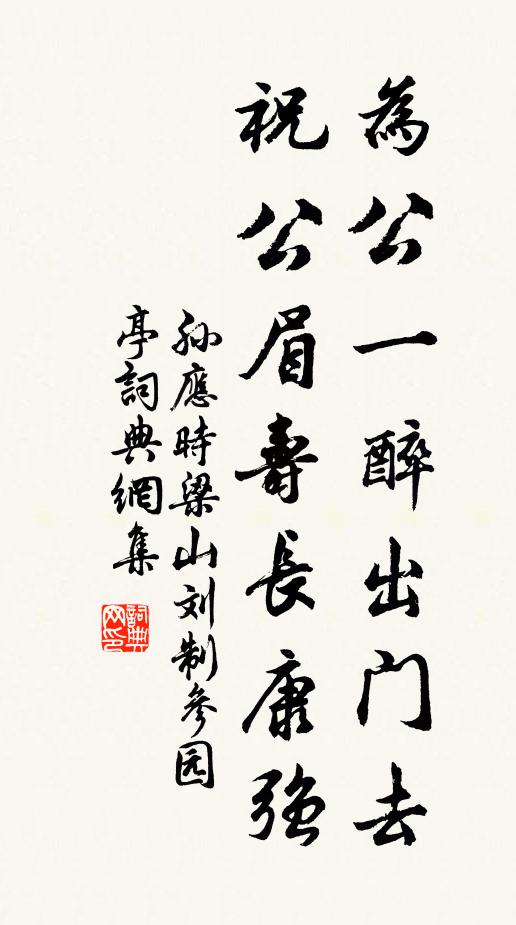 為公一醉出门去
祝公眉壽長康強
孙應時梁山刘制參园
亭詞典網集
詞典网印